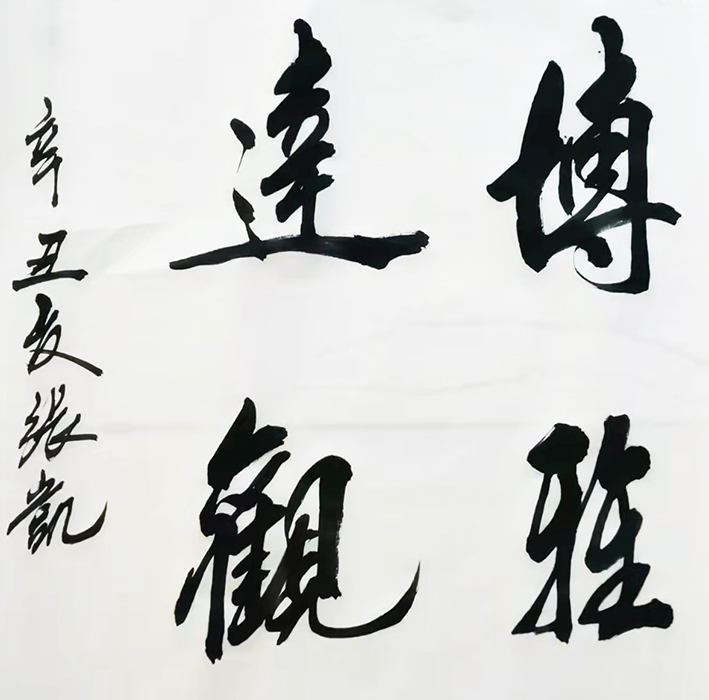 博雅
達觀
辛丑夏張凱